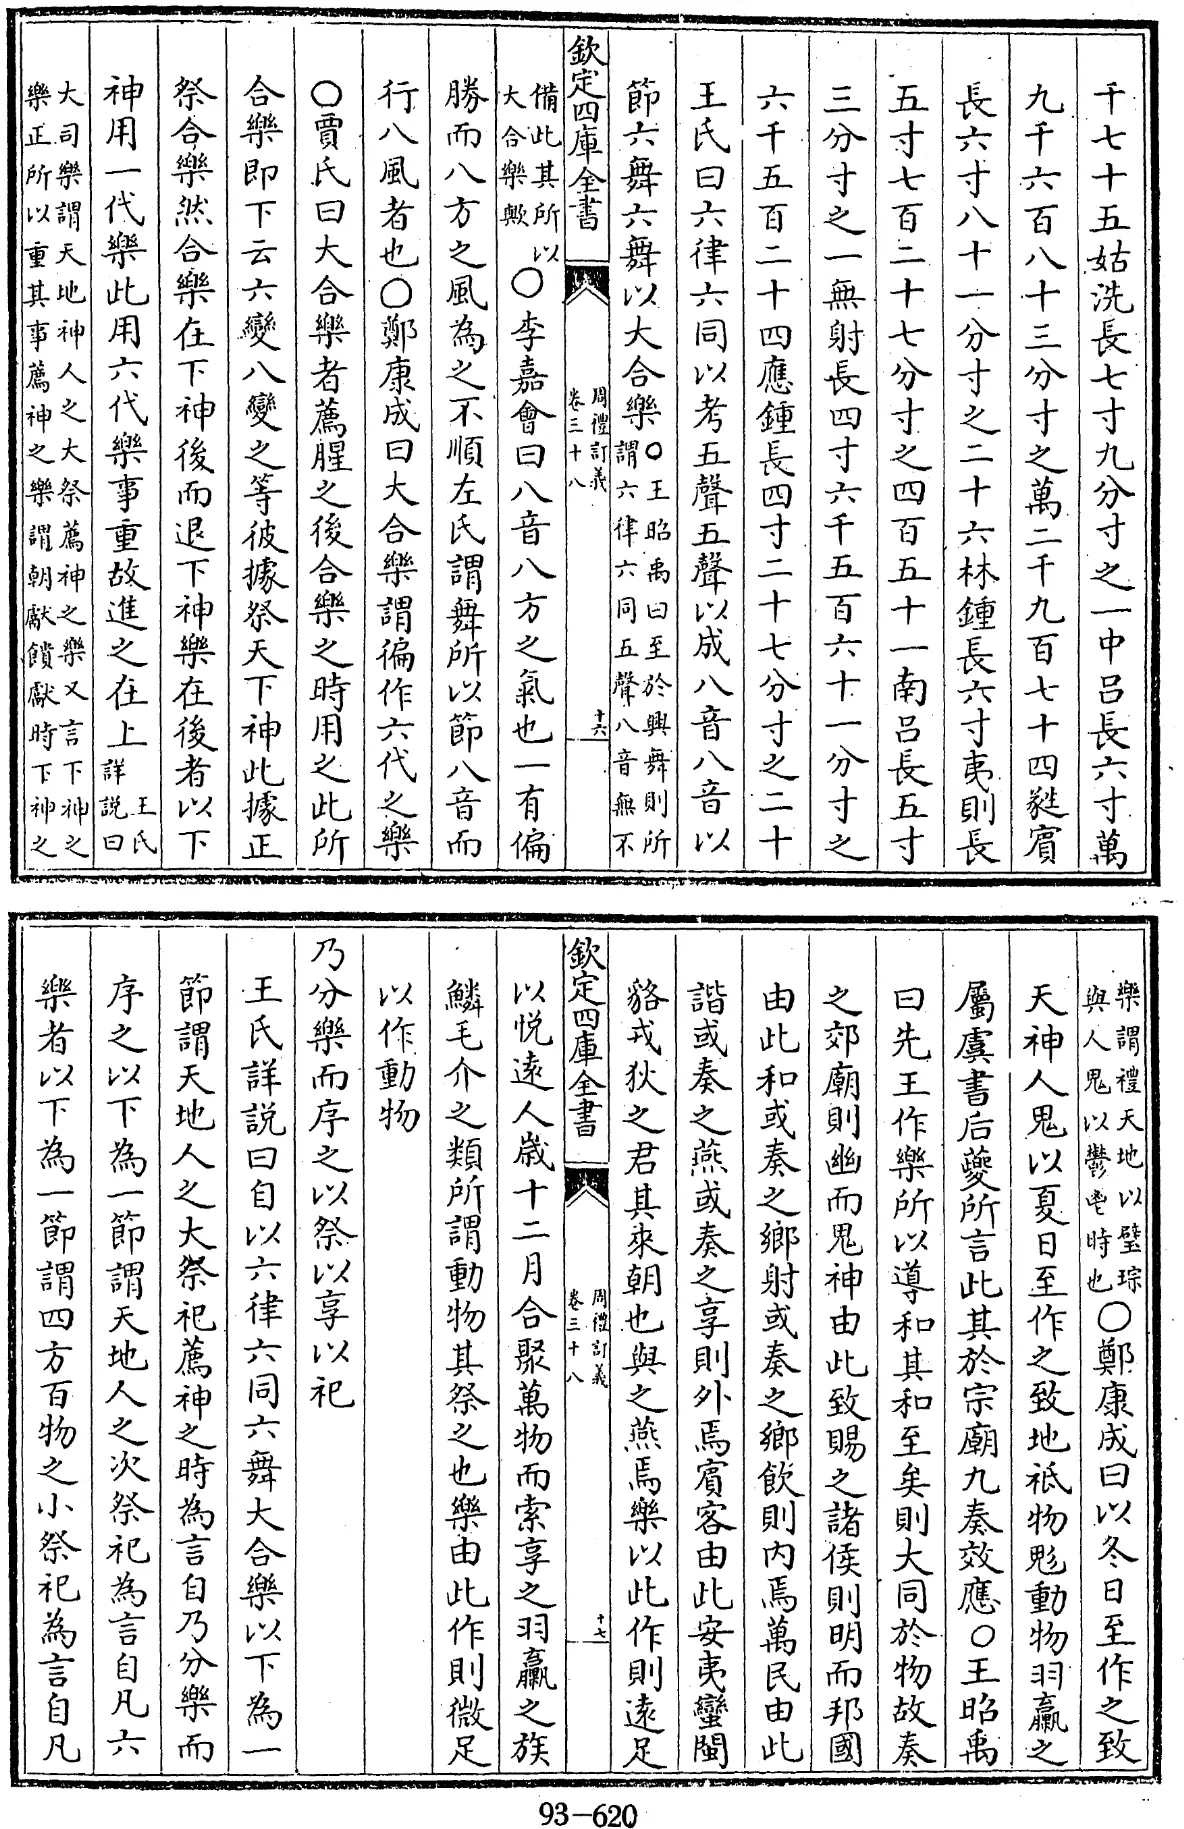 千七十五姑洗長七寸九分寸之一中吕長六寸萬
九千六百八十三分寸之萬二千九百七十四蕤賓
長六寸八十一分寸之二十六林鍾長六寸夷則長
五寸七百二十七分寸之四百五十一南吕長五寸
三分寸之一無射長四寸六千五百六十一分寸之
六千五百二十四應鍾長四寸二十七分寸之二十
王氏曰六律六同以考五聲五聲以成八音八音以
節六舞六舞以大合樂○王昭禹曰至於興舞則所
謂六律六同五聲八音無不
欽定四庫全書
周禮訂義
卷三十八
十六
備此其所以
大合樂歟○李嘉會曰八音八方之氣也一有偏
勝而八方之風為之不順左氏謂舞所以節八音而
行八風者也○鄭康成曰大合樂謂徧作六代之樂
○賈氏曰大合樂者薦腥之後合樂之時用之此所
合樂即下云六變八變之等彼據祭天下神此據正
祭合樂然合樂在下神後而退下神樂在後者以下
神用一代樂此用六代樂事重故進之在上王氏
詳説曰
大司樂謂天地神人之大祭薦神之樂又言下神之
樂正所以重其事薦神之樂謂朝獻饋獻時下神之
樂謂禮天地以璧琮
與人鬼以鬱鬯時也○鄭康成曰以冬日至作之致
天神人鬼以夏日至作之致地祇物鬽動物羽臝之
屬虞書后夔所言此其於宗廟九奏效應○王昭禹
曰先王作樂所以導和其和至矣則大同於物故奏
之郊廟則幽而鬼神由此致賜之諸侯則明而邦國
由此和或奏之鄉射或奏之鄉飲則内焉萬民由此
諧或奏之燕或奏之享則外焉賓客由此安夷蠻閩
貉戎狄之君其來朝也與之燕焉樂以此作則遠足
欽定四庫全書
周禮訂義
卷三十八
十七
以悦遠人歲十二月合聚萬物而索享之羽臝之族
鱗毛介之類所謂動物其祭之也樂由此作則微足
以作動物
乃分樂而序之以祭以享以祀
王氏詳説曰自以六律六同六舞大合樂以下為一
節謂天地人之大祭祀薦神之時為言自乃分樂而
序之以下為一節謂天地人之次祭祀為言自凡六
樂者以下為一節謂四方百物之小祭祀為言自凡
93-620